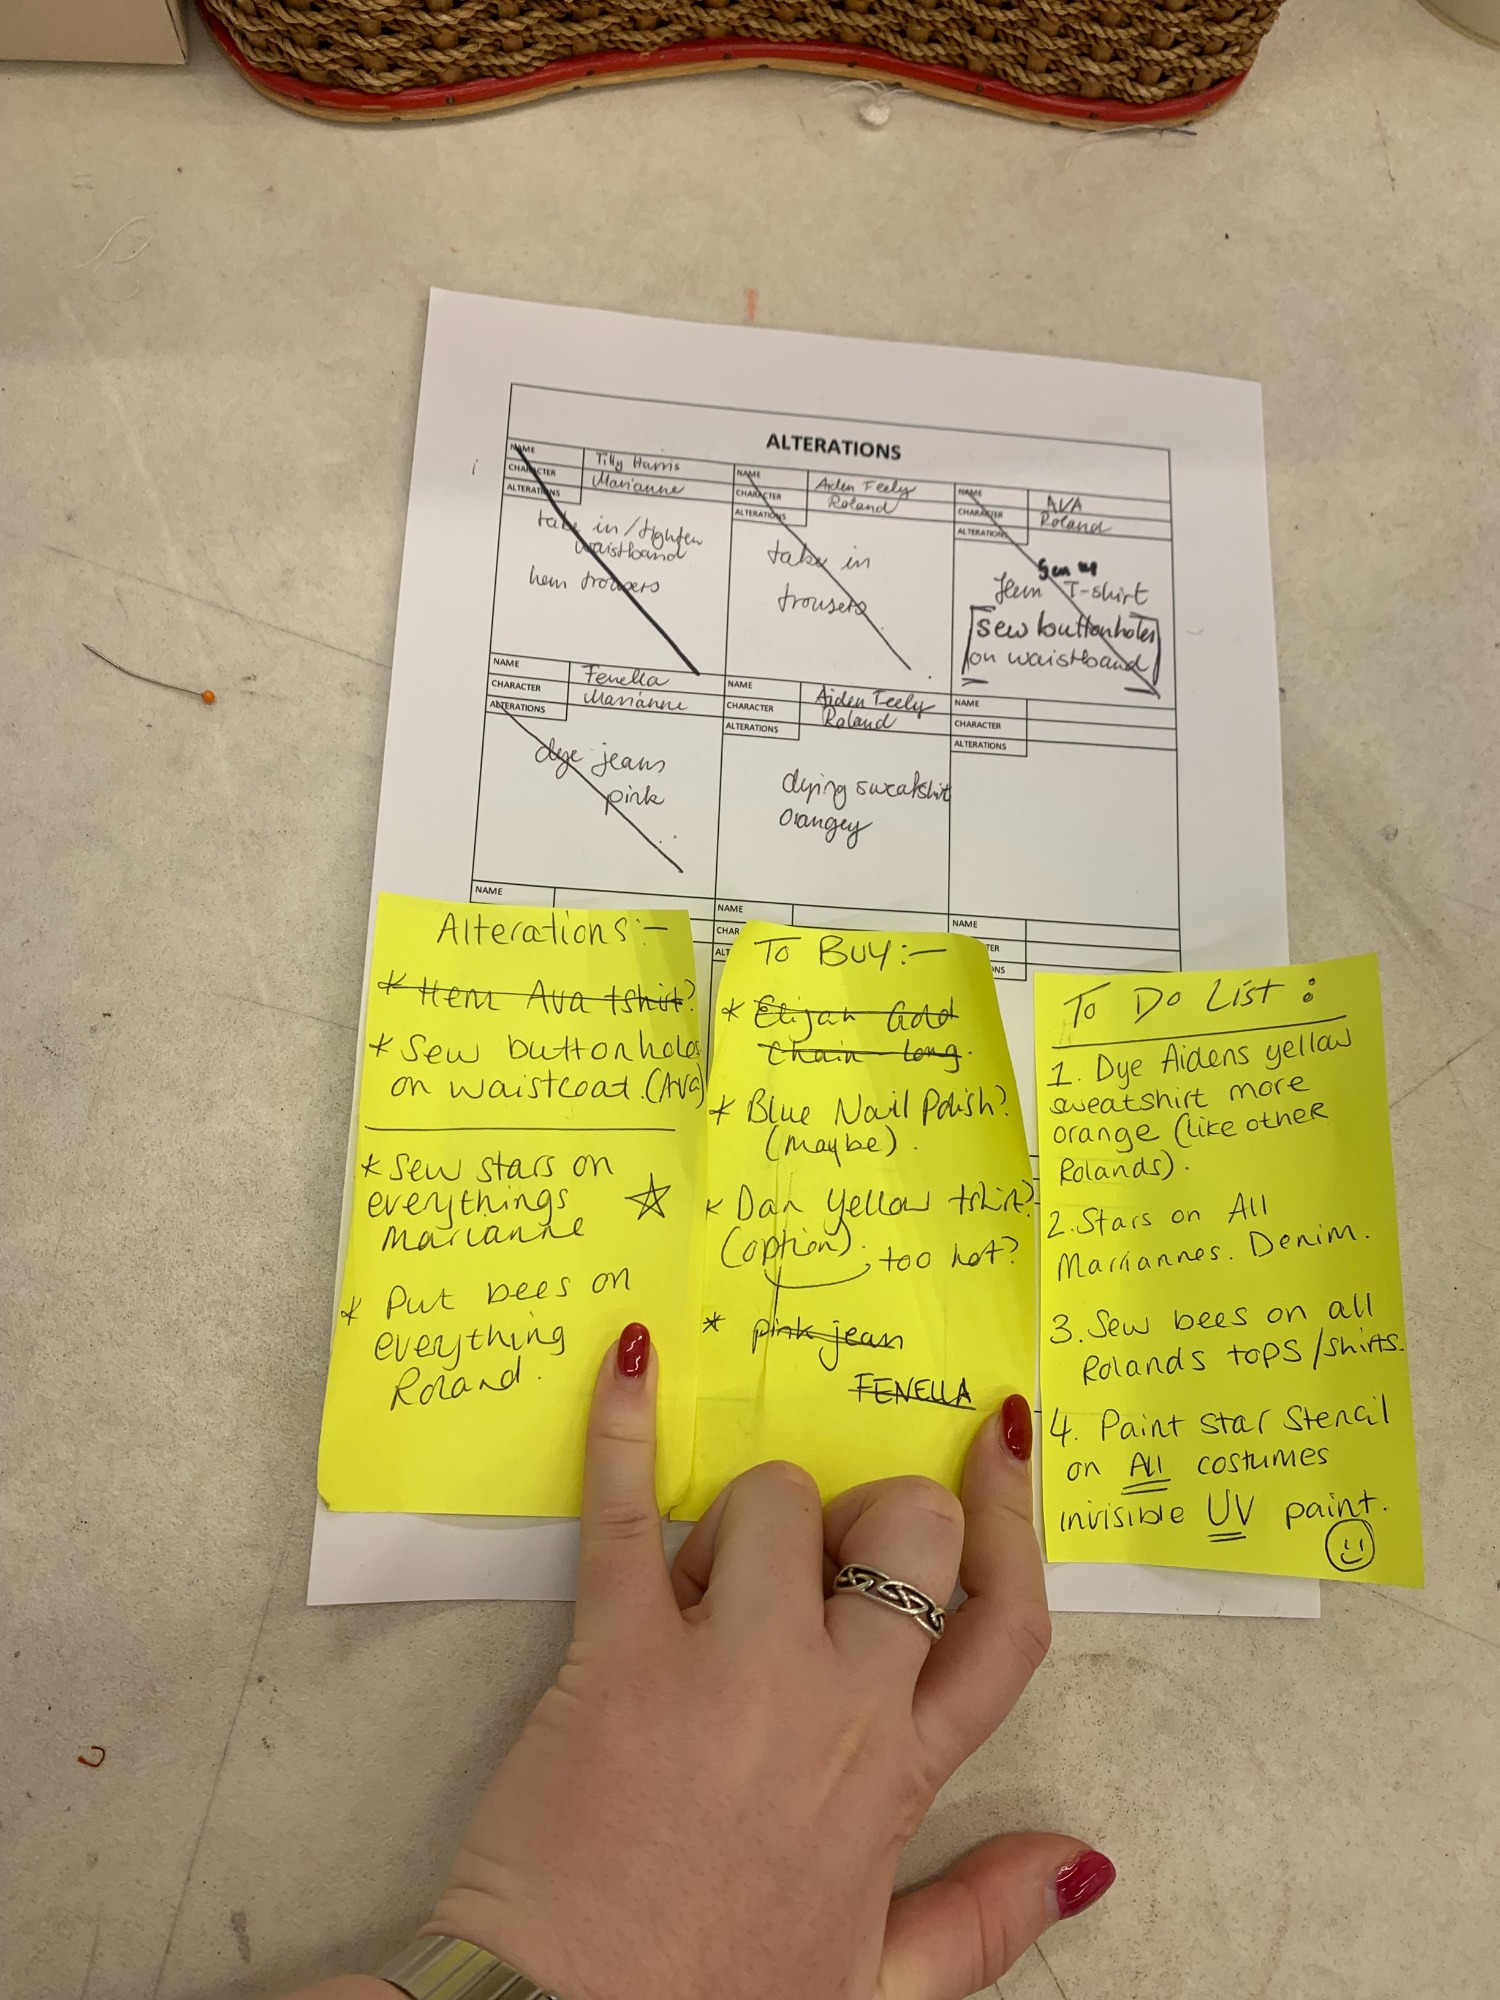 ALTERATIONS
NAME Tilly Harris
CHARACTER Marianne
ALTERATIONS
take in/tighten
waistband
hem trousers
NAME Aiden Feely
CHARACTER Roland
ALTERATIONS
take in
trousers
NAME AVA
CHARACTER Roland
ALTERATIONS
Sew up
Hem T-shirt
sew buttonholes
on waistband
NAME Fenella
CHARACTER Marianne
ALTERATIONS
dye jeans
pink
NAME Aiden Feely
CHARACTER Roland
ALTERATIONS
dying sweatshirt
orangey
NAME
CHARACTER
ALTERATIONS
NAME
NAME
CHAR
ALT
NAME
TER
ONS
Alterations:-
* Hem Ava tshirt?
* Sew buttonholes
on waistcoat.(Ava)
* Sew stars on
everythings
Marianne
* Put bees on
everything
Roland.
To BUY:-
* Elijah Gold
Chain long.
* Blue Nail Polish?
(maybe).
* Dan yellow tshirt?
(option).
too hot?
* pink jean
FENELLA
To Do List:
1. Dye Aidens yellow
sweatshirt more
orange (like other
Rolands).
2. Stars on All
Mariannes. Denim.
3. Sew bees on all
Rolands tops/shirts.
4. Paint Star Stencil
on All costumes
invisible UV paint.